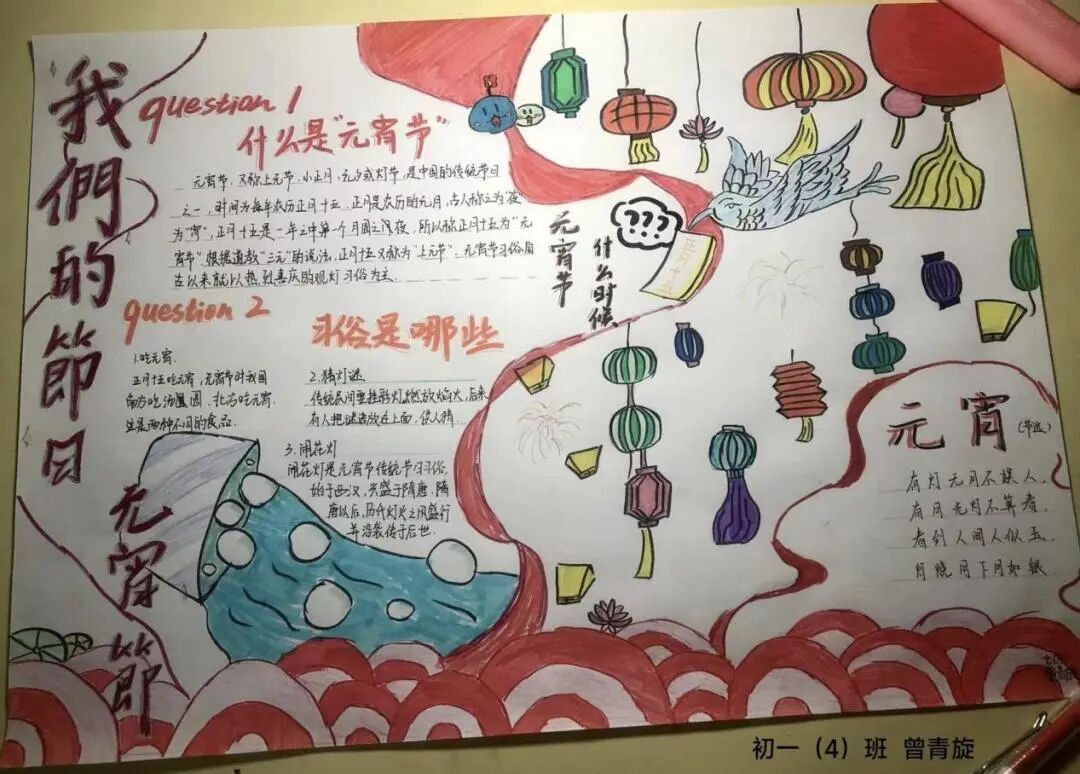 我們的節日
元宵節
question 1
什么是"元宵节"
元宵节，又称上元节、小正月、元夕或灯节，是中国的传统节日
之一，时间为每年农历正月十五，正月是农历的元月，古人称之为"夜"
为"宵"，正月十五是一年之中第一个月圆之夜，所以称正月十五为"元
宵节"根据道教"三元"的说法，正月十五又称为"上元节"。元宵节习俗自
古以来就以热烈喜庆的观灯习俗为主。
???
元宵节
什么时候
正月十五
question 2
习俗是哪些
1.吃元宵.
正月十五吃元宵，元宵节时我国
南方吃汤圆，北方吃元宵.
这是两种不同的食品.
2.猜灯谜
传统夜间要挂彩灯燃放焰火，后来
有人把谜语放在上面，供人猜
3.闹花灯
闹花灯是元宵节传统节日习俗，
始于西汉，兴盛于隋唐.隋
唐以后，历代灯火之风盛行
并沿袭传于后世.
元宵(节选)
有灯无月不娱人，
有月无灯不算春.
看到人间人似玉，
月烧月下月如银
初一（4）班 曾青旋